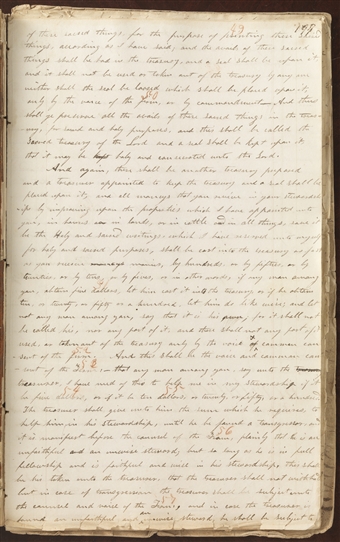 49 197
of these sacred things for the purpose of printing these sacred
things, according as I have said, and the avails of these sacred
things shall be had in the treasury, and a seal shall be upon it,
and it shall not be used or taken out of the treasury by any one
neither shall the seal be loosed which shall be placed upon it,
only by the voice of the order, or by commandment. And thus
50
shall ye preserve all the avails of these sacred things in the treas
ury, for sacred and holy purposes, and this shall be called the
sacred treasury of the Lord and a seal shall be kept upon it
that it may be holy and consecrated unto the Lord.
And again, there shall be another treasury prepared
and a treasurer appointed to keep the treasury and a seal shall be
placed upon it, and all moneys that you receive in your stewardsh
ip by improving upon the properties which I have appointed unto
you, in houses or in lands, or in cattle or in all things save it
be the Holy and Sacred writings, which I have reserved unto myself
for holy and sacred purposes, shall be cast into the treasury as fast
as you receive moneys, by hundreds, or by fifties, or by
twenties, or by tens, or by fives, or in other words, if any man among
you, obtain five dollars, let him cast it into the treasury or if he obtain
ten, or twenty, or fifty or a hundred, let him do likewise; and let
not any man among you, say that it is his own, for it shall not
be called his, nor any part of it, and there shall not any part of it
used, or taken out of the treasury only by the voice & common con
52
sent of the order. And this shall be the voice and common con
sent of the order; that any man among you, say unto the
treasurer, I have need of this to help me in my stewardship, if it
be five dollars, or if it be ten dollars, or twenty, or fifty, or a hundred
The treasurer shall give unto him the sum which he requires, to
help him, in his stewardship, until he be found a transgressor, and
56
it is manifest before the council of the order plainly that he is an
unfaithful and an unwise steward, but so long as he is in full
fellowship and is faithful and wise in his stewardship, this shall
be his token unto the treasurer, that the treasurer shall not withhold
but in case of transgression the treasurer shall be subject unto
the council and voice of the order, and in case the treasurer is
found an unfaithful and an unwise steward, he shall be subject to